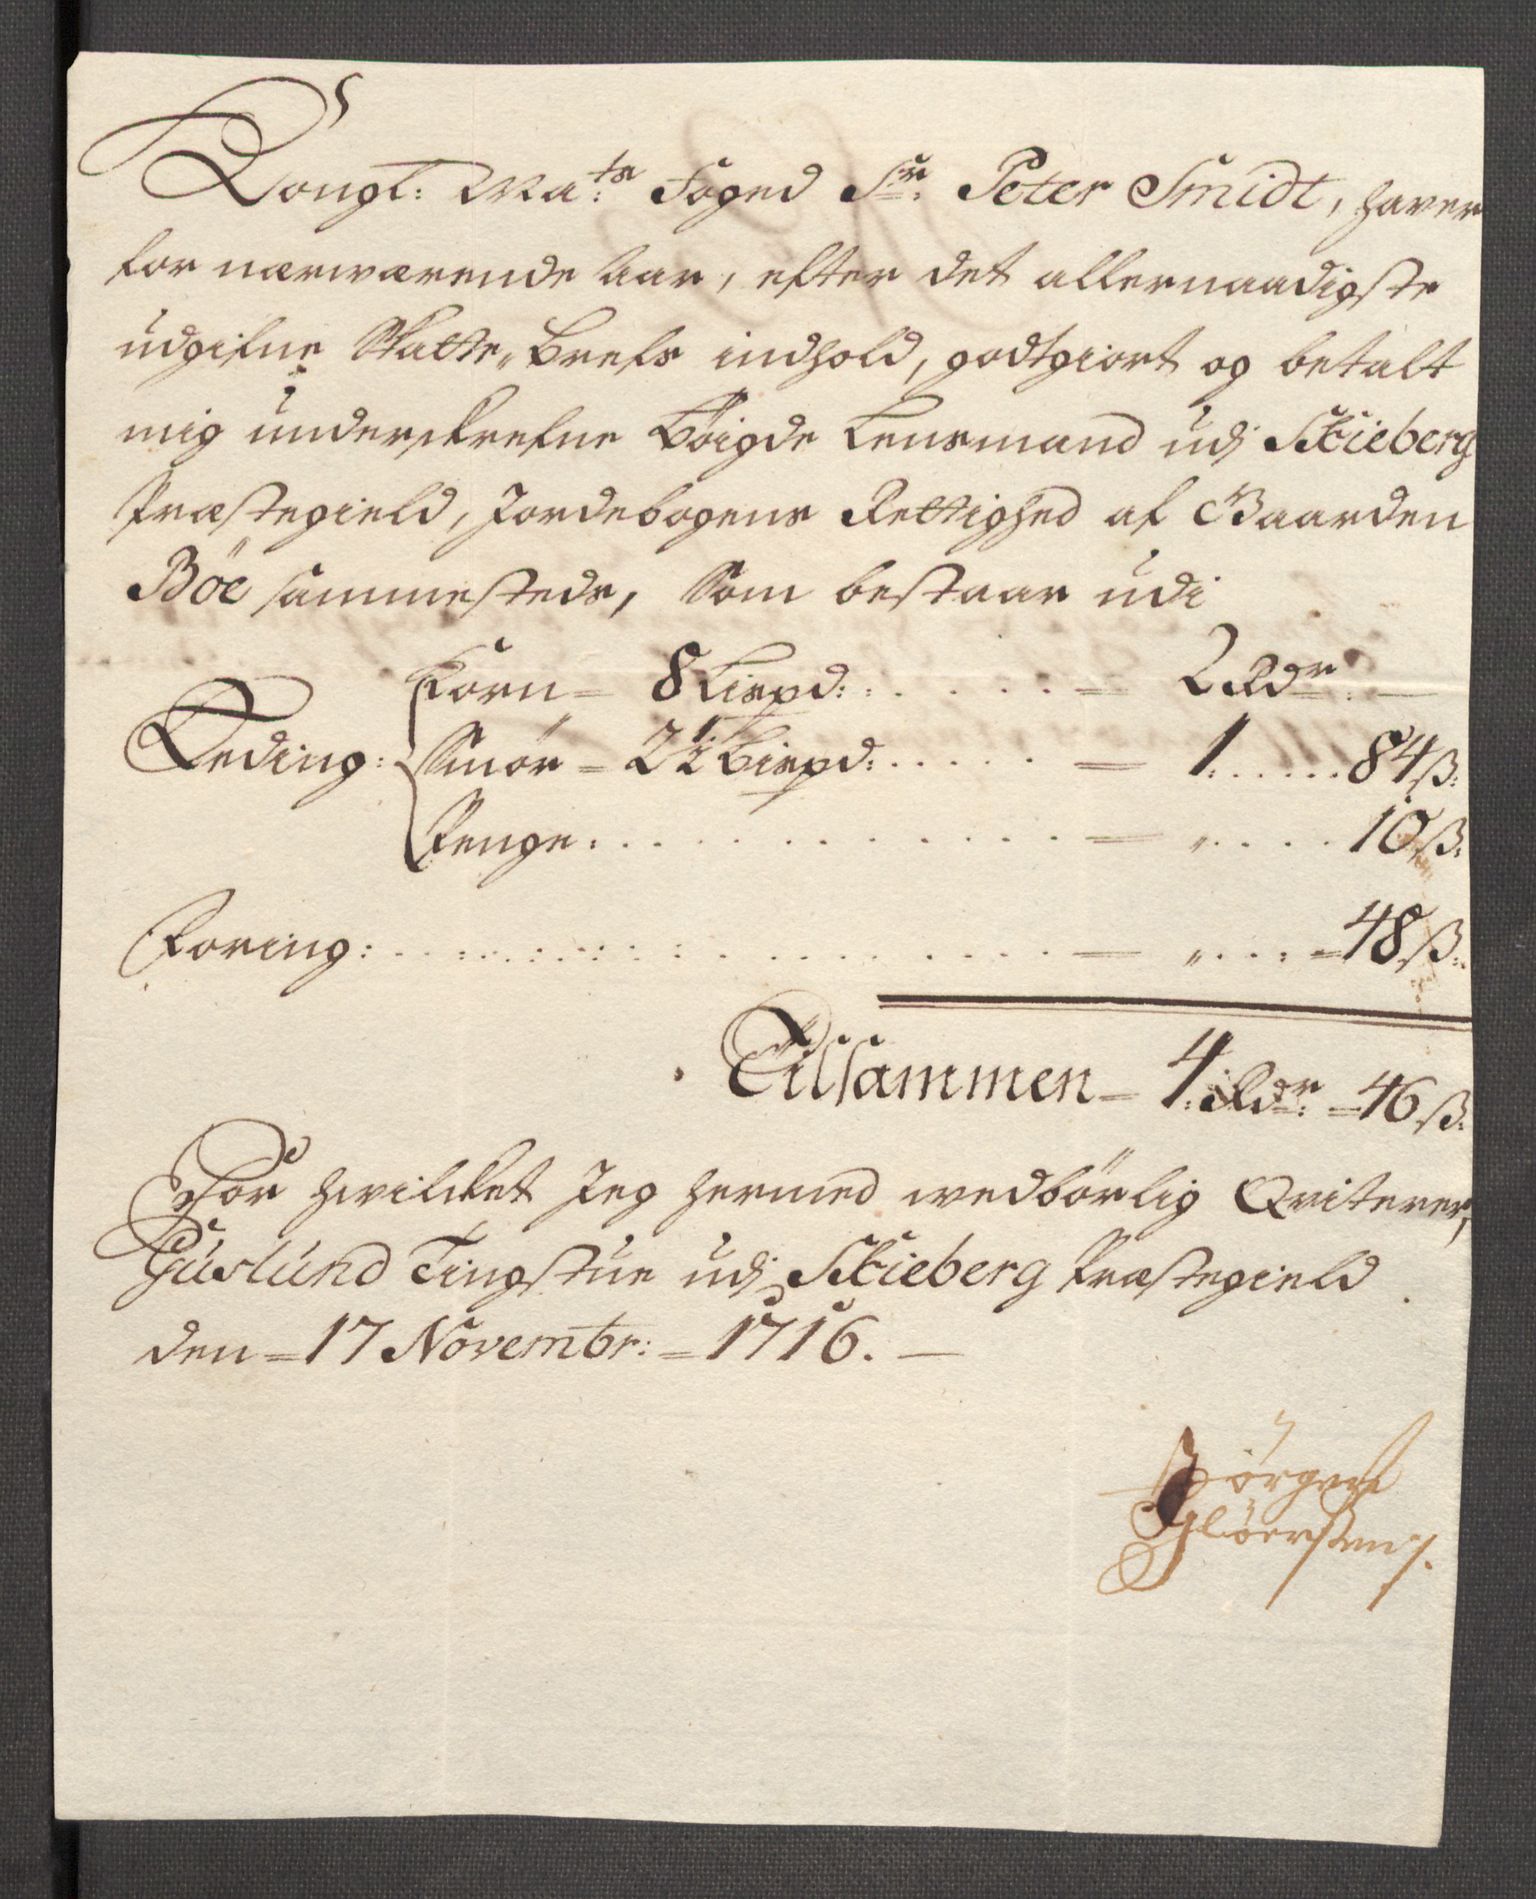 Kongl: Ma:ts Foged Sr. Peter Smidt, hafver
for nærwærende Aar, efter det allernaadigste
udgifne Skatte-Brefs indhold, godtgiort og betalt
mig underskrefne Böigde Lensmand udj Skieberg
Præstegield, Jordebogens Rettighed af Gaarden
Böe sammesteds, Som bestaar udi
Korn = 8 Lispd: . . . . . = 2 Rdr. —
Leding: Smör = 2½ Bispd: . . . . . = 1. . . . . . 84 ß:
Penge. . . . . . . . . . . . = „. . . . 10 ß:
Foring: . . . . . . . . . . . . . . = „. . . = 48 ß:
Tilsammen = 4: Rdr = 46 ß:
For hvilcket Jeg hermed wedbörlig Qviterer,
Guslund Tingstue udj Skieberg Præstegield
den = 17 Novembr: = 1716. —
Jörgen
Glöersen